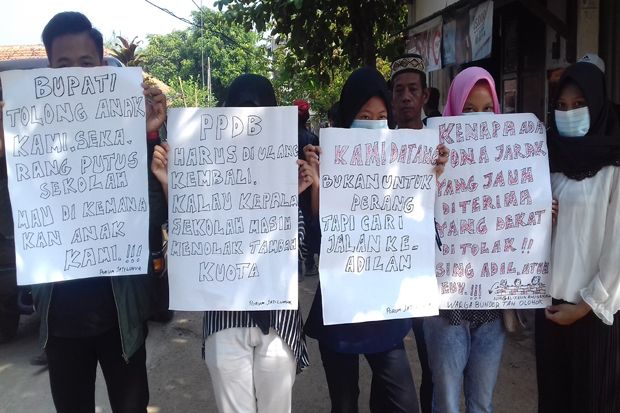 BUPATI
TOLONG ANAK
KAMI. SEKA.
RANG PUTUS
SEKOLAH
MAU DI KEMANA
KAN ANAK
KAMI. !!!
FORUM JATILUHUR
PPDB
HARUS DI ULANG
KEMBALI.
KALAU KEPALA
SEKOLAH MASIH
MENOLAK TAMBAH
KUOTA
FORUM JATILUHUR
KAMI DATANG
BUKAN UNTUK
PERANG
TAPI CARI
JALAN KE-
ADILAN
FORUM
KENAPA ADA
ZONA JARAK.
YANG JAUH
DI TERIMA
YANG DEKAT
DI TOLAK !!
SING ADIL, ATUH
EUY. !!!
WARGA BUNDER